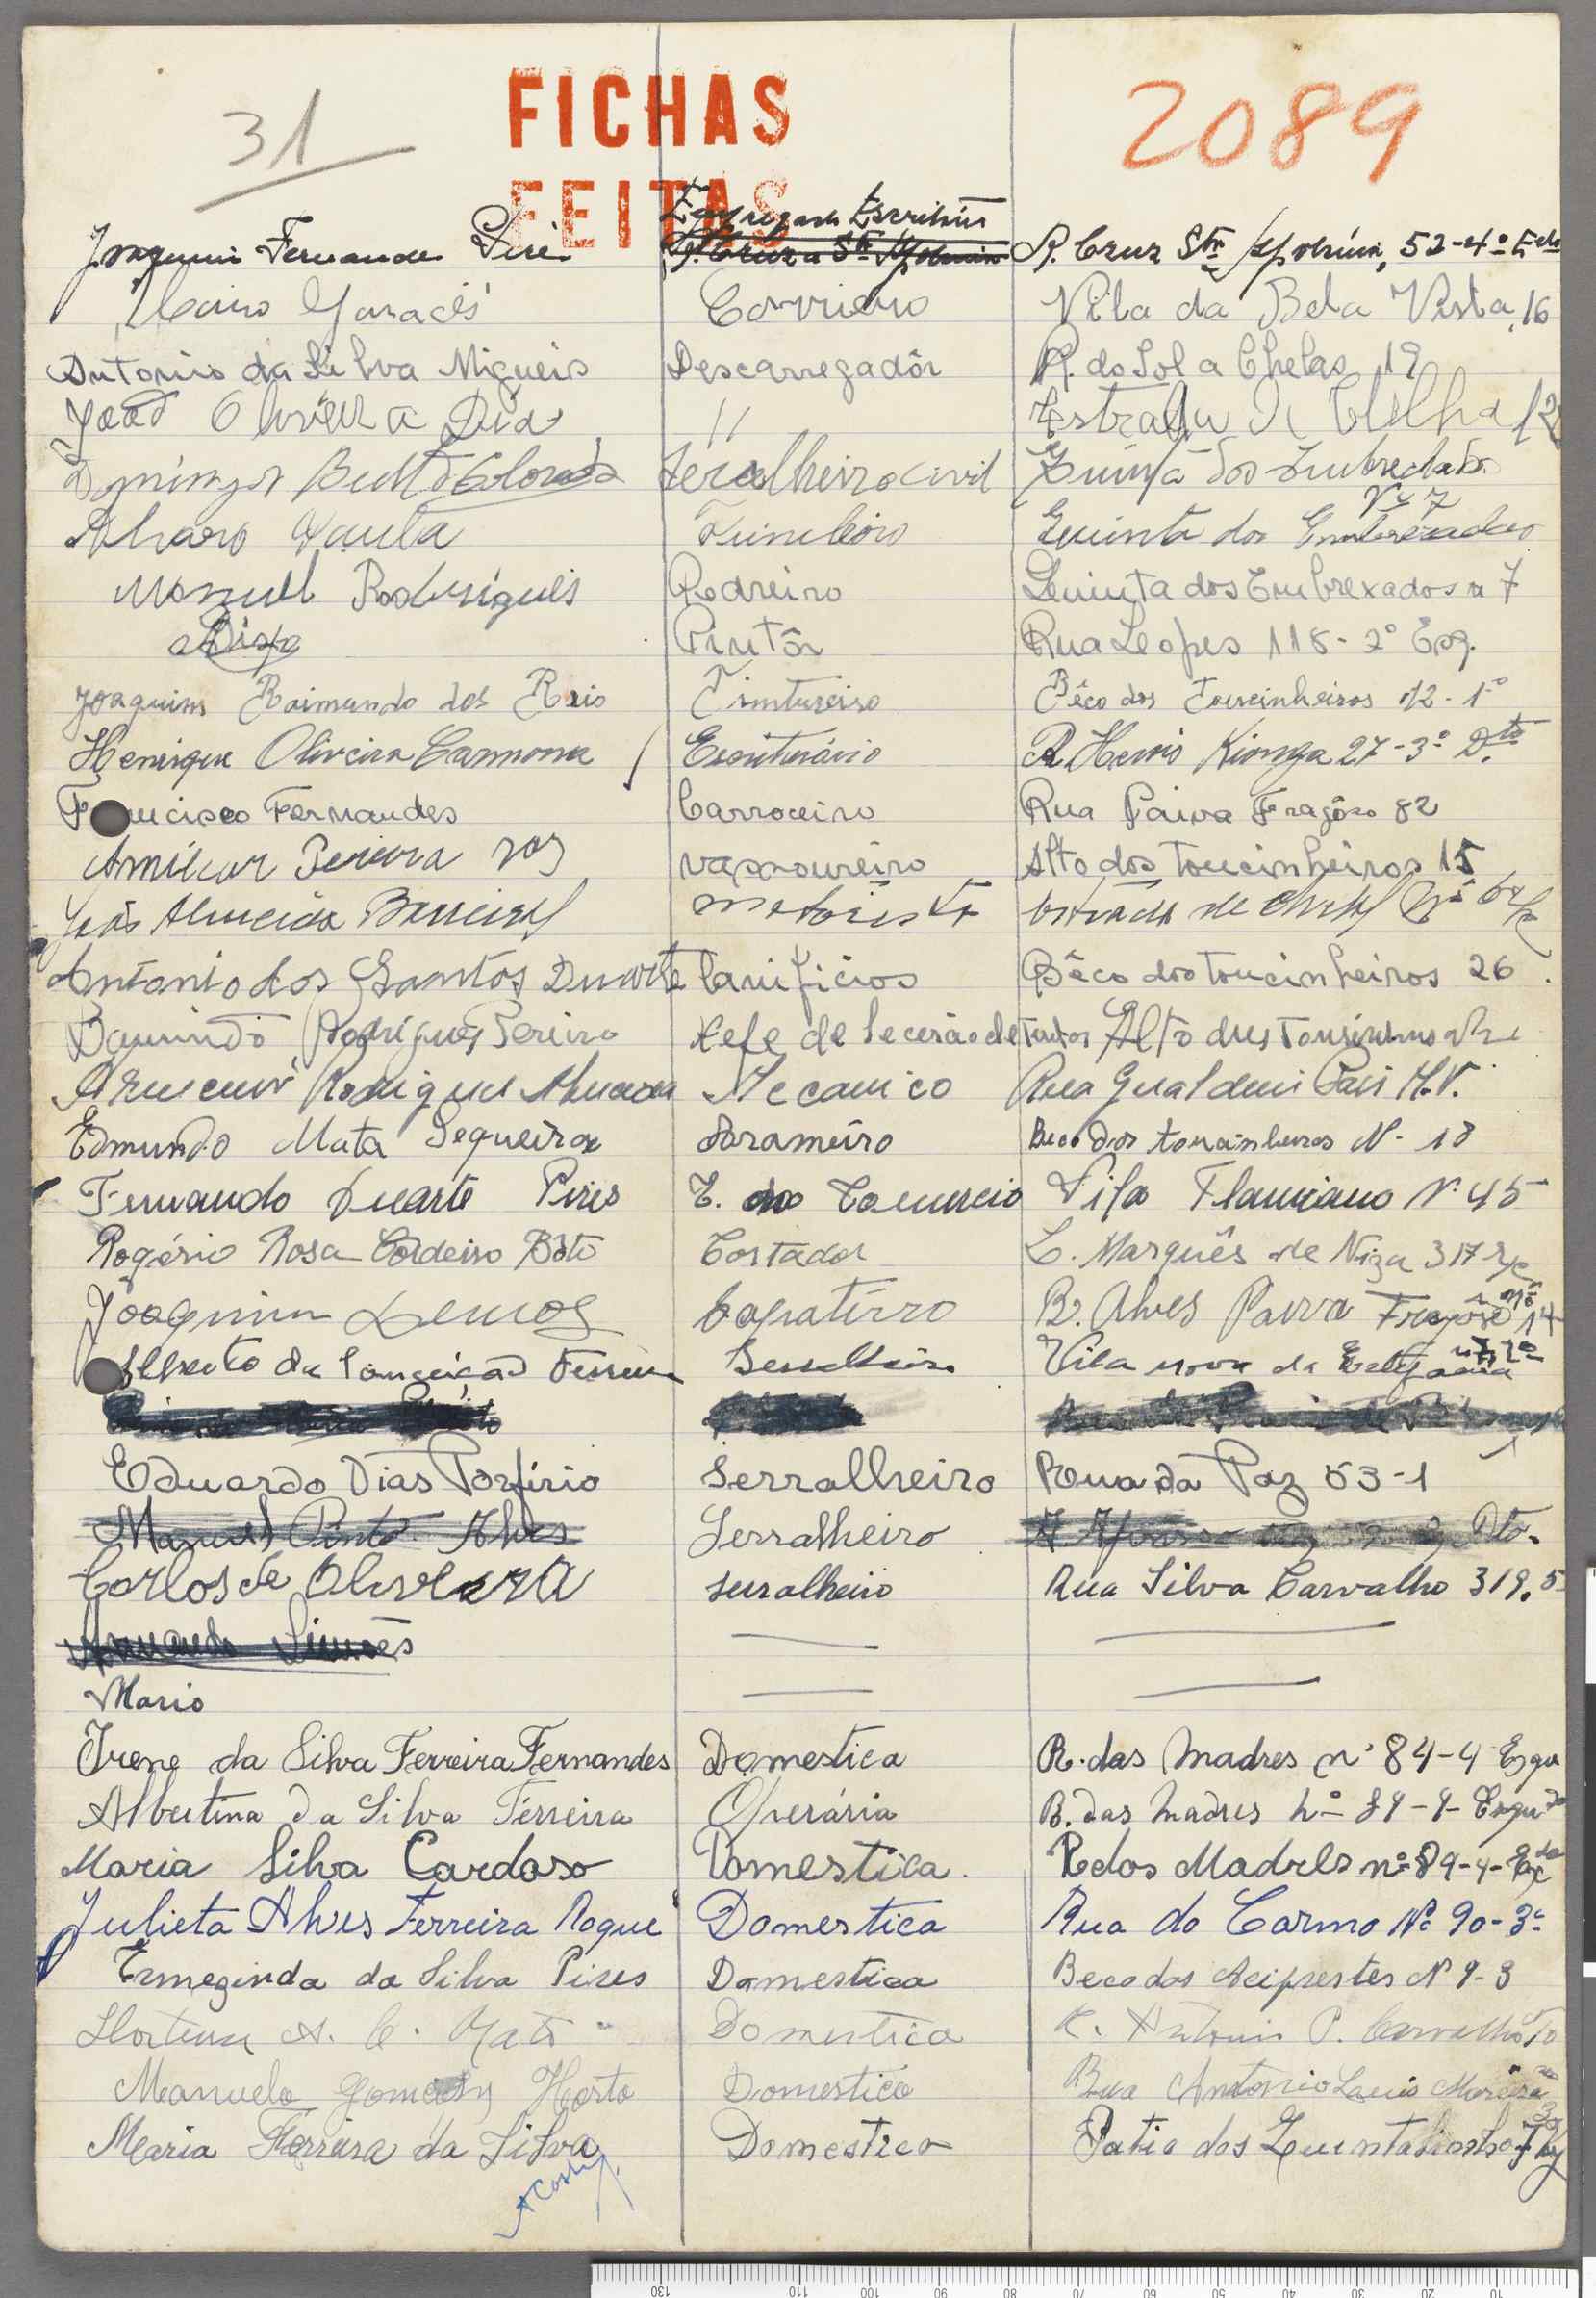 31
FICHAS
FEITAS
2089
Empregado Escritório
Joaquim Fernandes R. Cruz Sta Apolónia, 52-4º Edo
Mario Garacês Corrieiro Vila da Bela Vista, 16
Antonio da Silva Migueis Descarregadôr R. do Sol a Chelas 19
João Oliveira Dias " Estrada
Domingos Serralheiro civil Quinta dos Embrechados
Nº 7
Alvaro Paula Funileiro Quinta dos Embrexados
Manuel Rodrigues Pedreiro Quinta dos Embrexados n 7
Pintôr Rua Lopes 118-2º Esq.
Joaquim Raimundo dos Reis Tintureiro Bêco dos Toucinheiros 12-1º
Henrique Oliveira Carmona Escriturário R. Herois Kionga 27-3º Dto
Francisco Fernandes Carroceiro Rua Paiva Fragôso 82
Amilcar Pereira Vassoureiro Alto dos Toucinheiros 15
João Almeida Barreiros motorista estrada de chelas
Antonio dos Santos Duarte Lanifícios Bêco dos toucinheiros 26
Rodrigues Pereira Xefe de Seccsão de Alto dos
Rodrigues Almeida Mecanico Rua Gualdim Pais M.V.
Edmundo Mata Sequeira Arameiro Beco dos toucinheiros N- 18
Fernando Duarte Pires E. do Comercio Vila Flamiano N. 45
Rogério Rosa Cordeiro Bôto Cortador L. Marquês de Niza 317 r/c
Joaquim Lemos Çapatirro R. Alves Paiva Fragoso nº 14
Alberto da Conceição Ferreira Serralheiro Vila nova da
Eduardo Dias Porfirio Serralheiro Rua da Paz 53-1
Manuel Pinto Alves Serralheiro Dto.
Carlos de Oliveira serralheiro Rua Silva Carvalho 319. 5
Armando Simões
Mario
Irene da Silva Ferreira Fernandes Domestica R. das Madres nº 84-4 Esqu
Albertina da Silva Ferreira Operária R. das Madres nº 89-4- Esqudo
Maria Silva Cardoso Domestica. R dos Madres nº 89-4-
Julieta Alves Ferreira Roque Domestica Rua do Carmo Nº 90-3º
Ermezinda da Silva Pires Domestica Beco dos Aciprestes Nº 9-3
Hortense A. C. Mato Domestica R. Antonio P. Carvalho
Manuela Gomes Horta Domestica Rua Antonio Luis Moreira
Maria Ferreira da Silva Domestica Patio dos